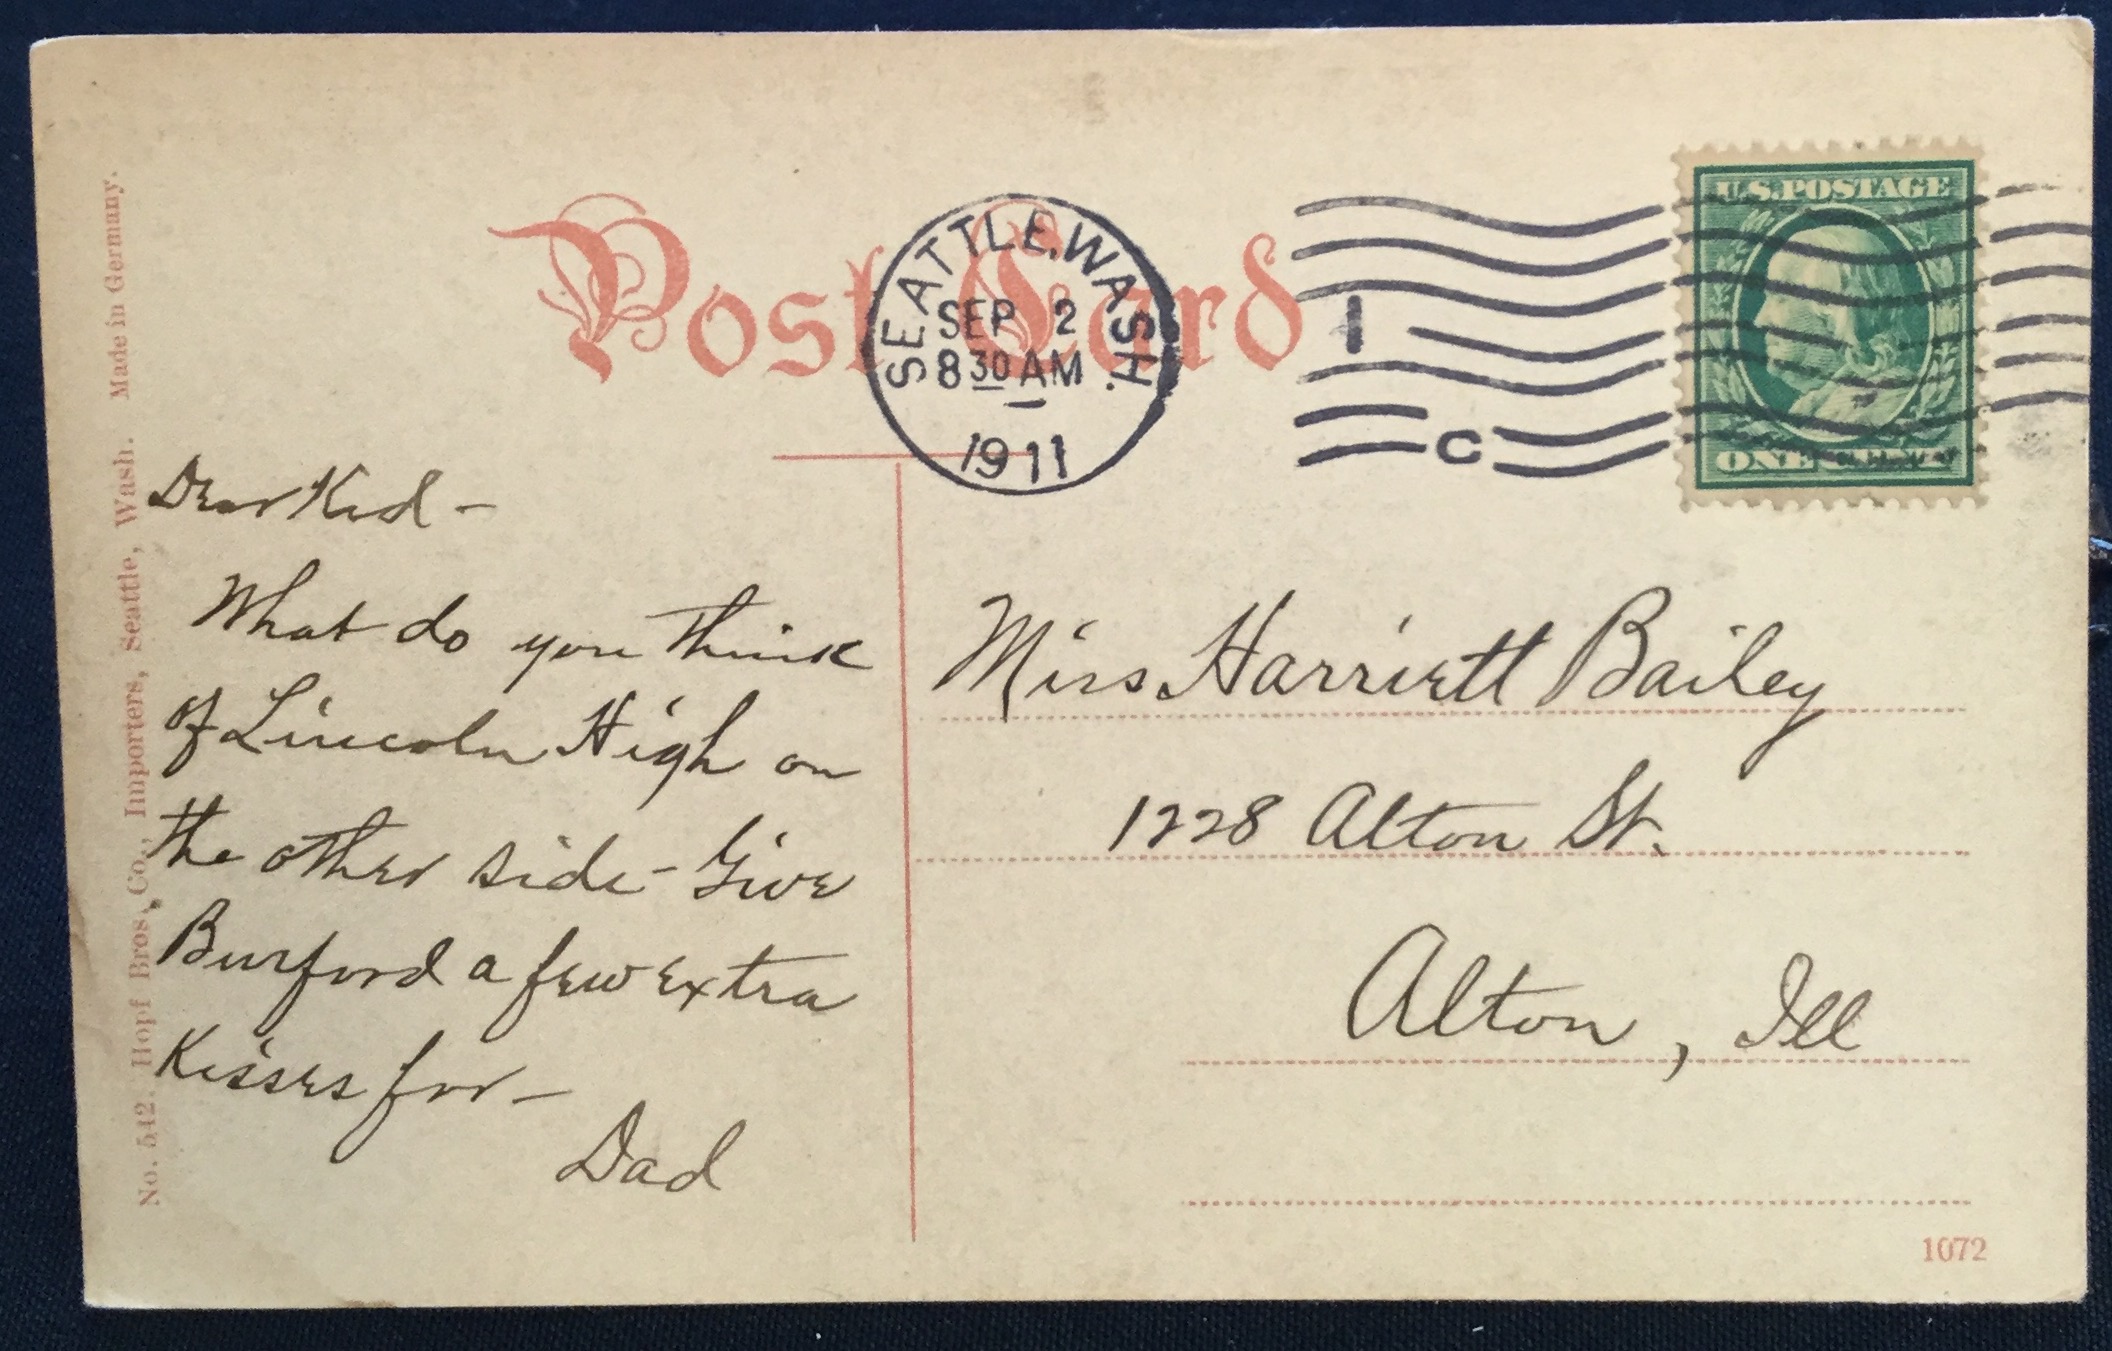 Post Card
SEATTLE, WASH.
SEP 2
8 30 AM
1911
1
C
U.S. POSTAGE
ONE CENT
Dear Kid –
What do you think
of Lincoln High on
the other side – Give
Burford a few extra
Kisses for –
Dad
Miss Harriett Bailey
1228 Alton St.
Alton, Ill
No. 542. Hopf Bros. Co., Importers, Seattle, Wash. Made in Germany.
1072